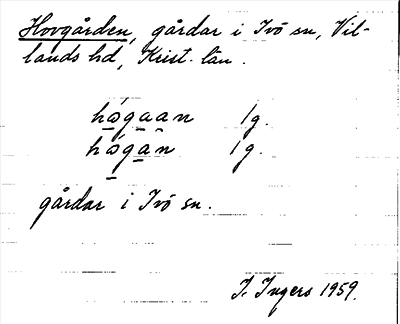 Hovgården, gårdar i Ivö sn, Vil-
lands hd, Krist. län.
hǻgaan 1g.
hǻgân 1g.
gårdar i Ivö sn.
I. Ingers 1959.